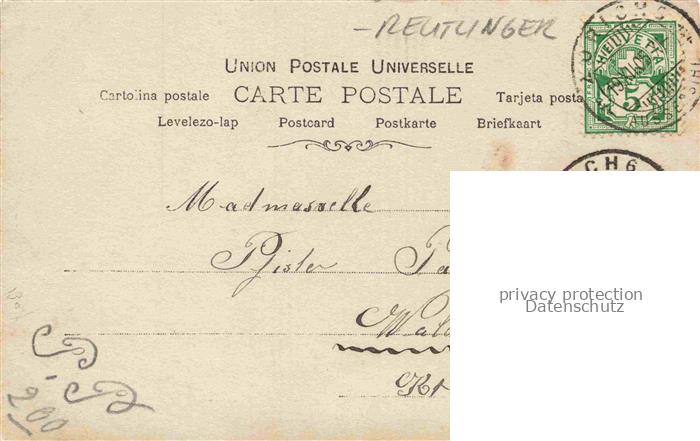 -REUTLINGER
UNION POSTALE UNIVERSELLE
Cartolina postale CARTE POSTALE Tarjeta posta
Levelezo-lap Postcard Postkarte Briefkaart
HELVETIA
5
CH6
Madmaselle
Pfister
privacy protection
Datenschutz
Wald
Kt
200